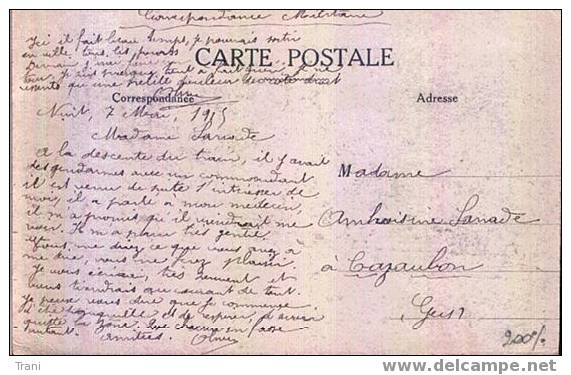 Correspondance Militaire
Ici il fait beau temps, je pourrais sortir
en ville tous les jours
CARTE POSTALE
tout à fait bien, je ne
ressens qu'une petite
Correspondance
Adresse
Nuit, 7 Mai, 1915
Madame Lanade
A la descente du train, il y avait
des gendarmes avec un commandant
il est venu de suite s'intéresser de
moi, il a parlé à mon médecin,
il m'a promis qu'il viendrait me
voir. Il m'a paru très gentil.
me direz ce que vous avez à
me dire, vous me ferez plaisir.
Je vous écrirai très souvent et
vous tiendrais au courant de tout.
Je peux vous dire que je commence
à être tranquille et de respirer,
quitté la zone. Que chacun en fasse
autant.
Amitiés.
Madame
Ambroisine Lanade
à Cazaubon
Gers
200%
Trani
www.delcampe.net